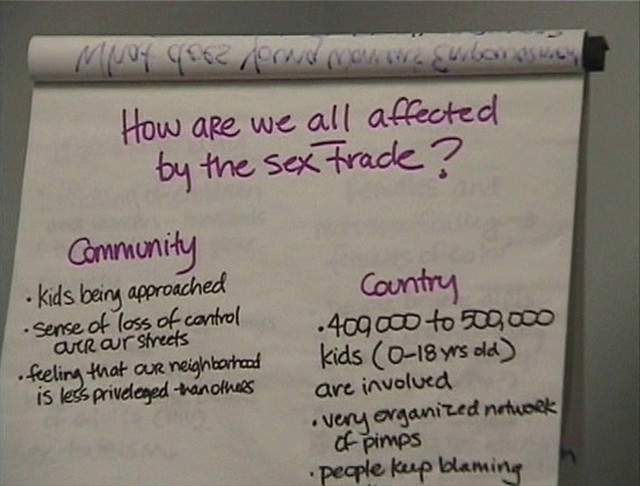 How are we all affected
by the sex trade?
Community
• kids being approached
• sense of loss of control
over our streets
• feeling that our neighborhood
is less priveleged than others
Country
• 400,000 to 500,000
kids (0-18 yrs old)
are involved
• very organized network
of pimps
• people keep blaming